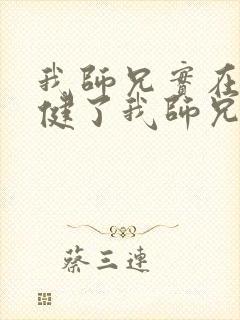 我師兄實在
健了我師兄
蔡三連